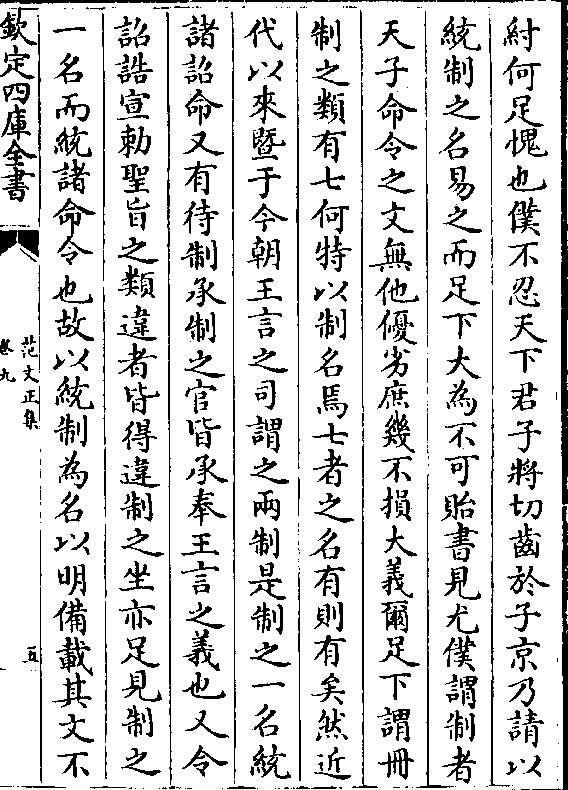 紂何足愧也僕不忍天下君子將切齒於子京乃請以
統制之名易之而足下大為不可貽書見尤僕謂制者
天子命令之文無他優劣庶幾不損大義爾足下謂冊
制之類有七何特以制名焉七者之名有則有矣然近
代以來暨于今朝王言之司謂之兩制是制之一名統
諸詔命又有待制承制之官皆承奉王言之義也又令
詔誥宣勅聖旨之類違者皆得違制之坐亦足見制之
一名而統諸命令也故以統制為名以明備載其文不
欽定四庫全書
范文正集
卷九
五